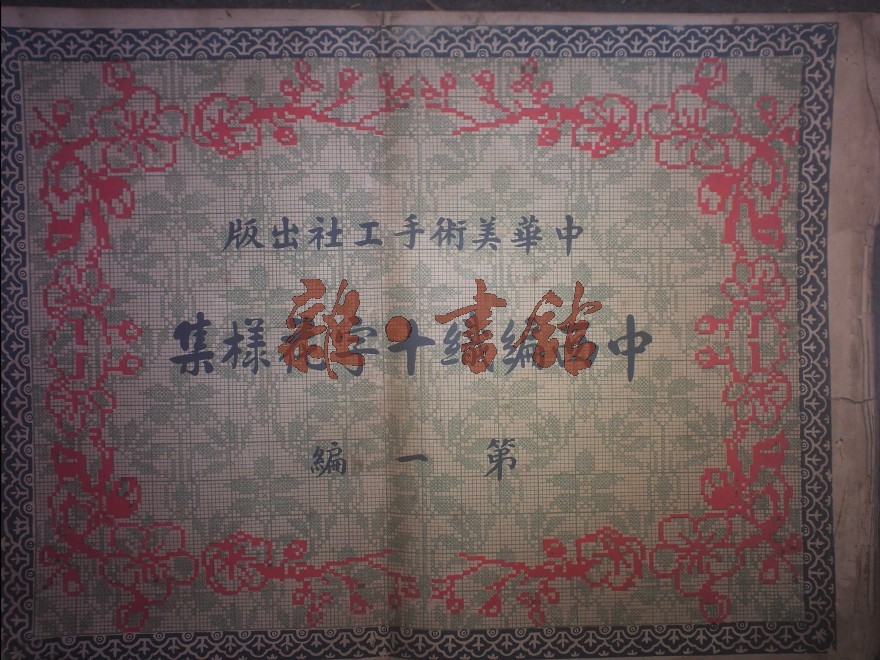 中華美術手工社出版
中編十字花樣集
雜·書館
第一編